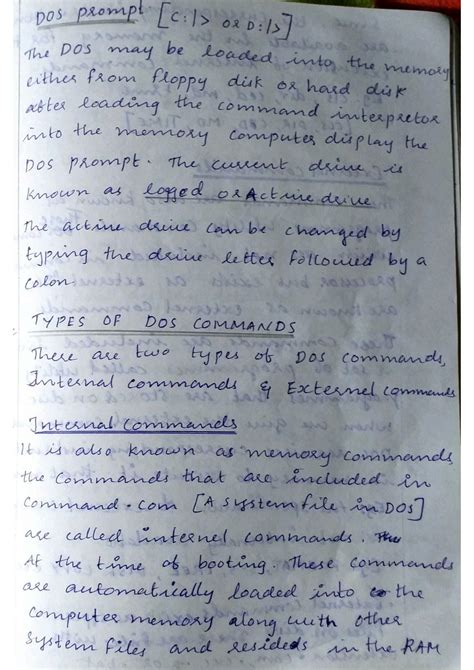 DOS prompt [C:\> or D:\>]
The DOS may be loaded into the memory
either from floppy disk or hard disk
after loading the command interpretor
into the memory computer display the
DOS prompt. The current drive is
known as logged or Active drive
The active drive can be changed by
typing the drive letter followed by a
colon.
TYPES OF DOS COMMANDS
There are two types of DOS commands,
Internal commands & External commands
Internal Commands
It is also known as memory commands
the commands that are included in
Command.com [A system file in DOS]
are called internel commands. The
At the time of booting. These commands
are automatically loaded into the
computer memory along with other
System files and resides in the RAM